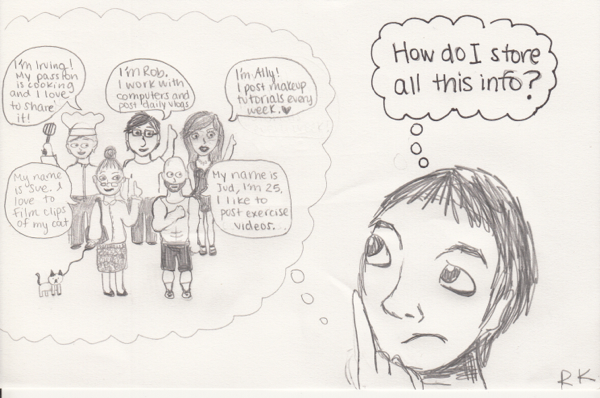 I'm Irving!
My passion
is cooking
and I love
to share
it!
I'm Rob.
I work with
computers and
post daily vlogs
I'm Ally!
I post makeup
tutorials every
week.
My name
is Sue. I
love to
film clips
of my cat
My name is
Jud, I'm 25,
I like to
post exercise
videos...
How do I store
all this info?
RK